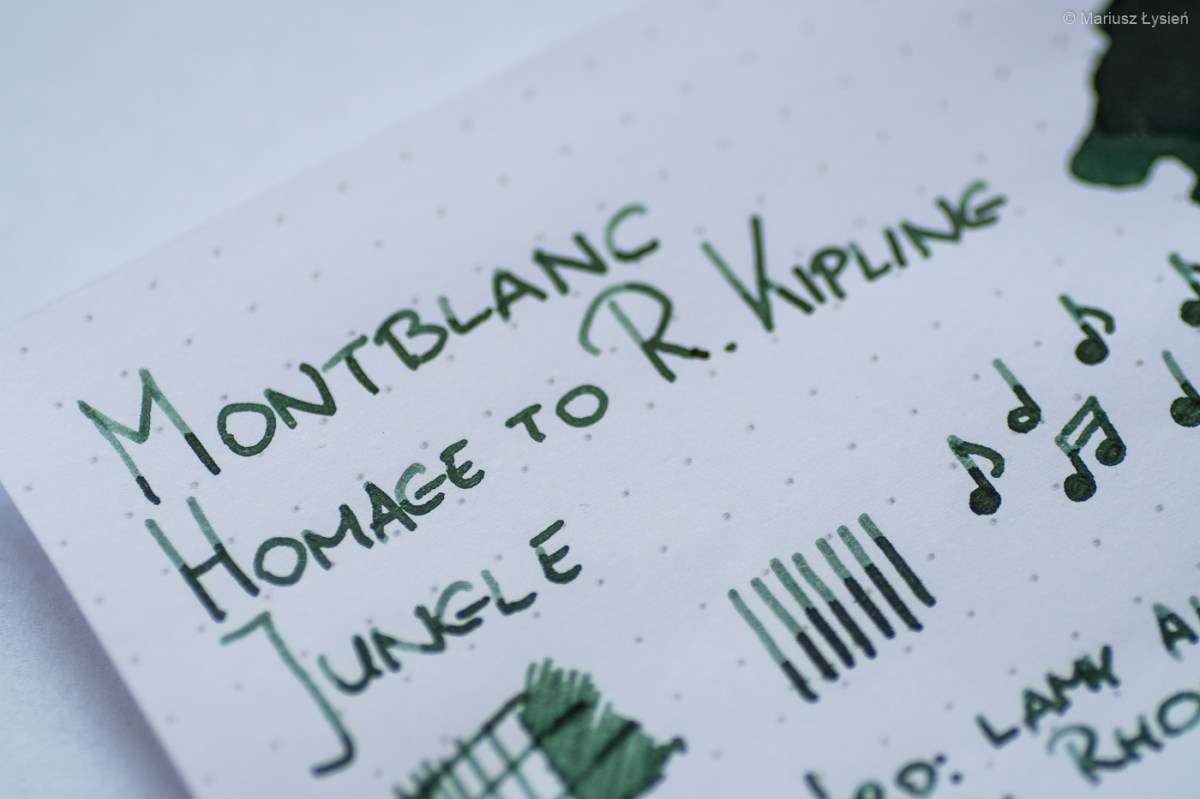 © Mariusz Łysień
MONTBLANC
HOMAGE TO R. KIPLING
JUNGLE
LAMY